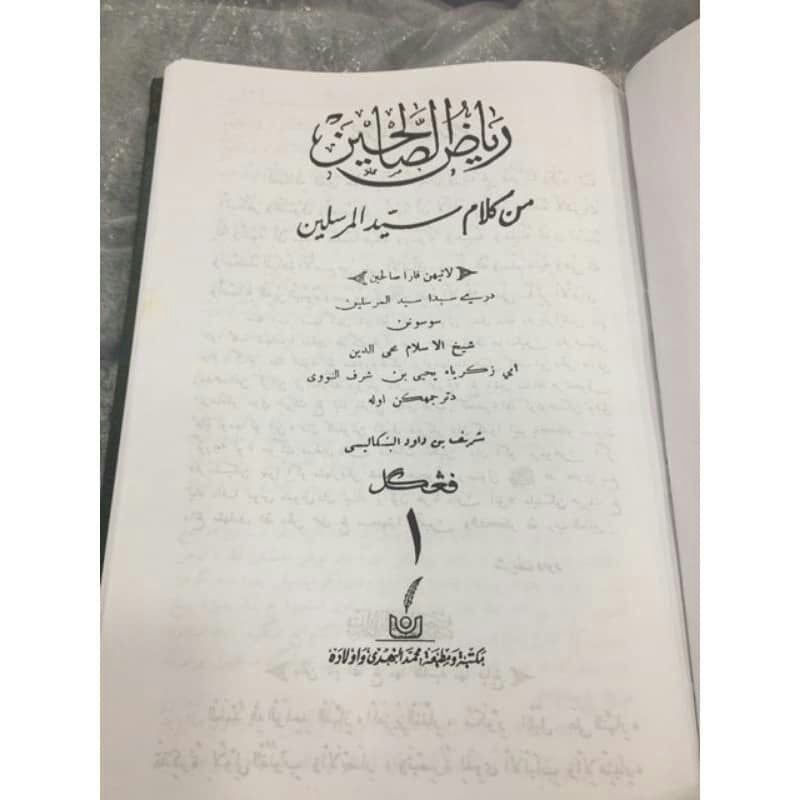 رياض الصالحين
من كلام سيد المرسلين
لاتيهن فارا صالحين
دري سبدا سيد المرسلين
سوسونن
شيخ الاسلام محى الدين
ابي زكرياء يحيى بن شرف النووى
دترجمهكن اوله
شريف بن داود البنكاليسى
فڠݢل
١
مكتبة ومطبعة، محمد النهدى واولاده